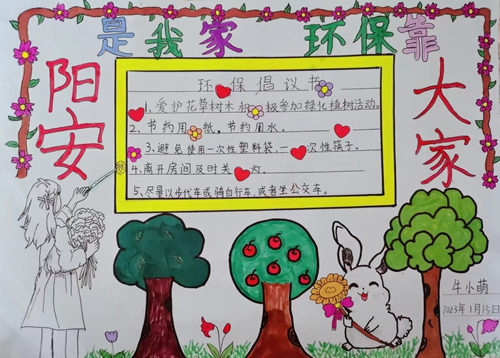 阳安是我家 环保靠大家
环保倡议书
1、爱护花草树木积极参加绿化植树活动。
2、节约用纸,节约用水。
3、避免使用一次性塑料袋,一次性筷子。
4、离开房间及时关灯。
5、尽量以步代车或骑自行车,或者坐公交车。
牛小萌
2023年1月15日